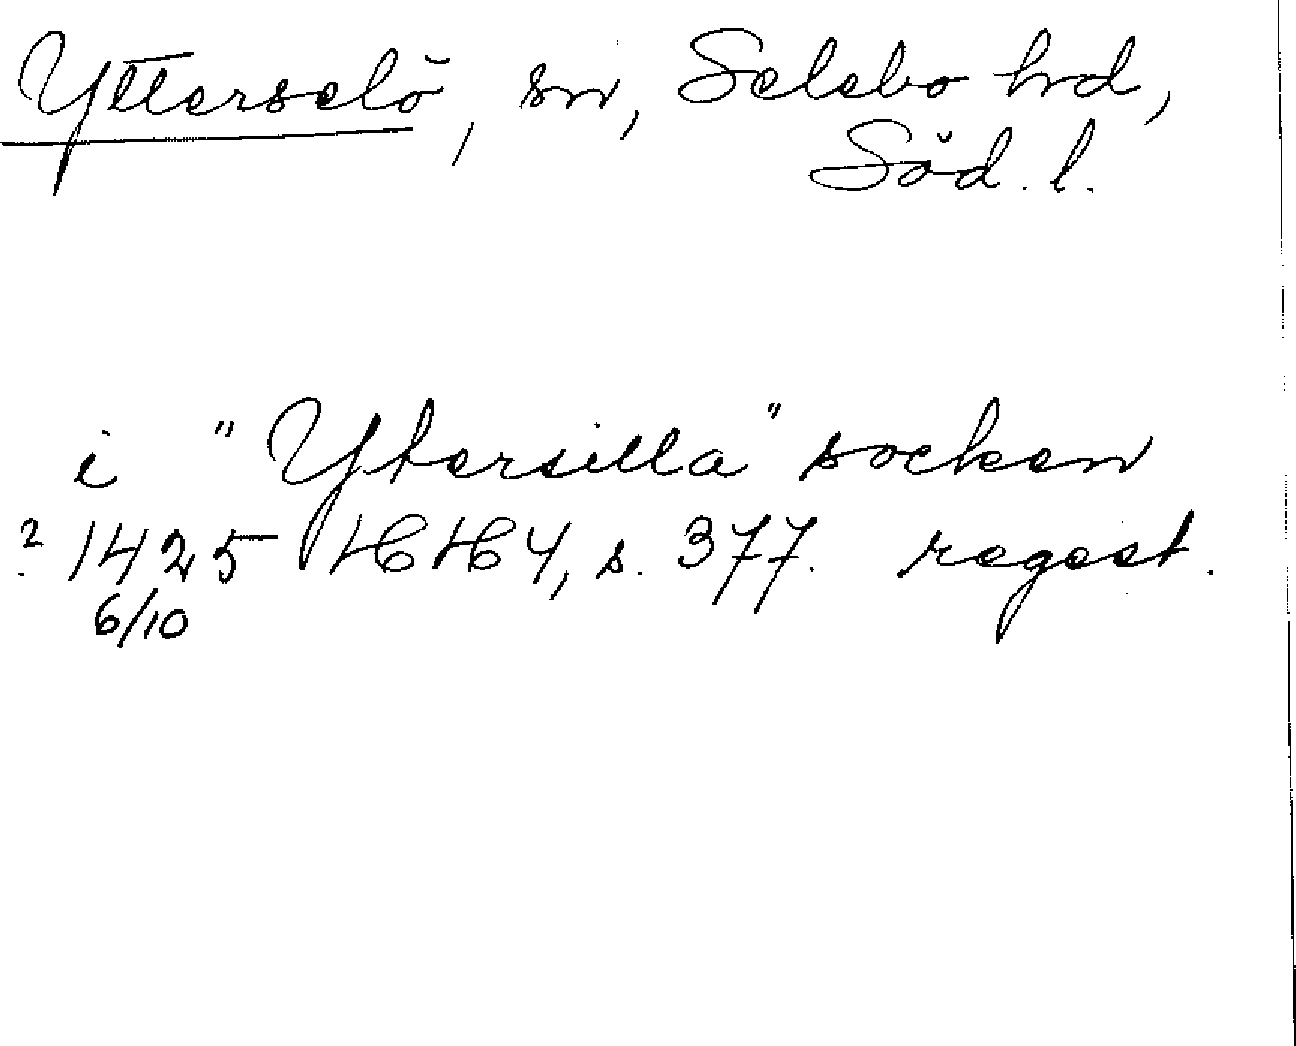 Ytterselö, sn, Selebo hrd,
Söd. l.
i "Ytersilla" socken
? 1425 HH 4, s. 377. regest.
6/10